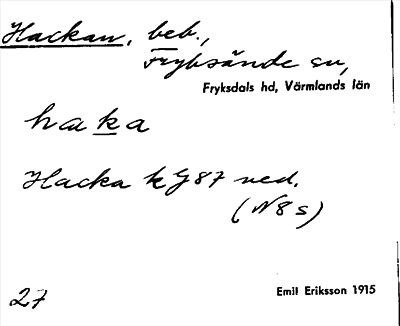 Hackan, beb.,
Fryksände sn,
Fryksdals hd, Värmlands län
haka
Hacka k G 87 ned.
(N8s)
27
Emil Eriksson 1915